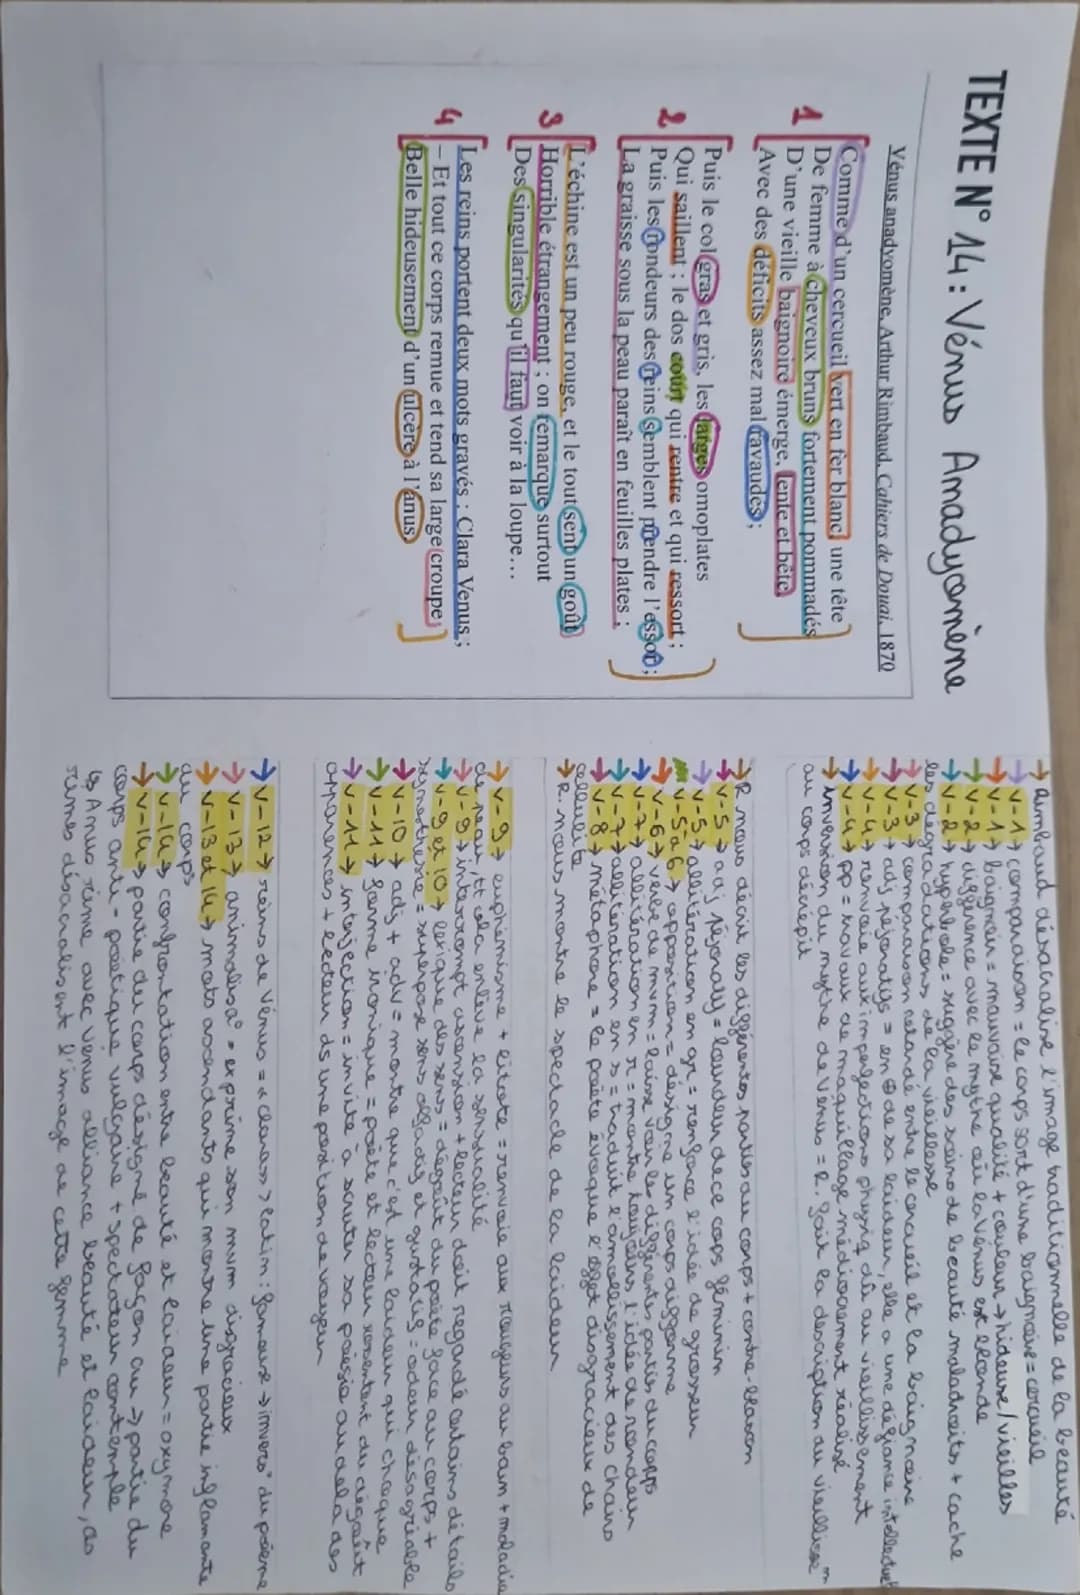 TEXTE N° 14 : Vénus Anadyomène
Vénus anadyomène, Arthur Rimbaud, Cahiers de Douai, 1870
1
Comme d'un cercueil vert en fer blanc, une tête
De femme à cheveux bruns fortement pommadés
D'une vieille baignoire émerge, lente et bête,
Avec des déficits assez mal ravaudés ;
2
Puis le col gras et gris, les larges omoplates
Qui saillent ; le dos court qui rentre et qui ressort ;
Puis les rondeurs des reins semblent prendre l'essor ;
La graisse sous la peau paraît en feuilles plates ;
3
L'échine est un peu rouge, et le tout sent un goût
Horrible étrangement ; on remarque surtout
Des singularités qu'il faut voir à la loupe...
4
Les reins portent deux mots gravés : Clara Venus ;
– Et tout ce corps remue et tend sa large croupe
Belle hideusement d'un ulcère à l'anus.
→ Rimbaud désacralise l'image traditionnelle de la beauté
→ v-1 → comparaison = le corps sort d'une baignoire = cercueil
→ v-1 → baignoire = mauvaise qualité + couleur → hideuse / vieilles
→ v-2 → différence avec le mythe où la Vénus est blonde
→ v-2 → hyperbole = suggère des soins de beauté maladroits + cache
les dégradations de la vieillesse
→ v-3 → comparaison retardé entre le cercueil et la baignoire
→ v-3 → adj péjoratifs = en ⊕ de sa laideur, elle a une défiance intellectuel
→ v-4 → renvoie aux imperfections physiq dû au vieillissement
→ v-4 → pp = travaux de maquillage médiocrement réalisé
→ inversion du mythe de Venus = R. fait la description du vieillisse m
au corps décrépit
→ R nous décrit les différentes parties du corps + contre-blason
→ v-5 → adj péjoratif = lourdeur de ce corps féminin
→ v-5 → allitération en gr = renforce l'idée de grosseur
v-5 à 6 → opposition = désigne un corps difforme
→ v-6 → verbe de mvm = laisse voir les différentes parties du corps
→ v-7 → allitération en r = montre toujours l'idée de rondeur
→ v-7 → allitération en s = traduit l'amollissement des chairs
→ v-8 → métaphore = le poète évoque l'effet disgracieux de
cellulite
→ R. nous montre le spectacle de la laideur
→ v-9 → euphémisme + litote = renvoie aux rougeurs du bain + maladie
de peau, tt cela enlève la sensualité
→ v-9 → interrompt ascension + lecteur doit regardé certains détails
→ v-9 et 10 → lexique des sens = dégoût du poète face au corps +
synesthésie = superpose sens olfactif et gustatif = odeur désagréable
→ v-10 → adj + adv = montre que c'est une laideur qui choque
→ v-11 → forme ironique = poète et lecteur ressentent du dégoût
→ v-11 → interjection = invite à scruter sa poésie au delà des
apparences + lecteur ds une position de voyeur
→ v-12 → reins de Vénus = « Clara » > latin : fameuse → invers° du poème
→ v-13 → animalisa° = exprime son mvm disgracieux
→ v-13 et 14 → mots ascendants qui montre une partie inflamante
du corps
→ v-14 → confrontation entre beauté et laideur = oxymore
→ v-14 → partie du corps désigné de façon cru → partie du
corps anti-poétique vulgaire + spectateur contemple
↳ Anus rime avec Venus alliance beauté et laideur, ces
rimes désacralisent l'image de cette femme